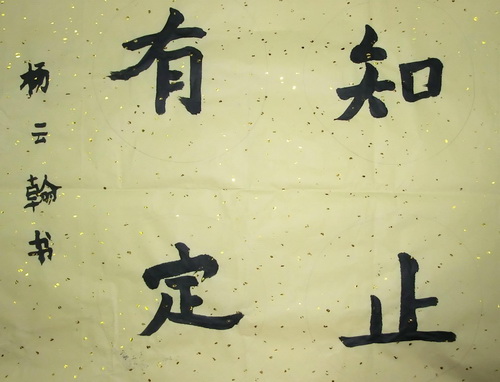 知止
有定
杨云翰书